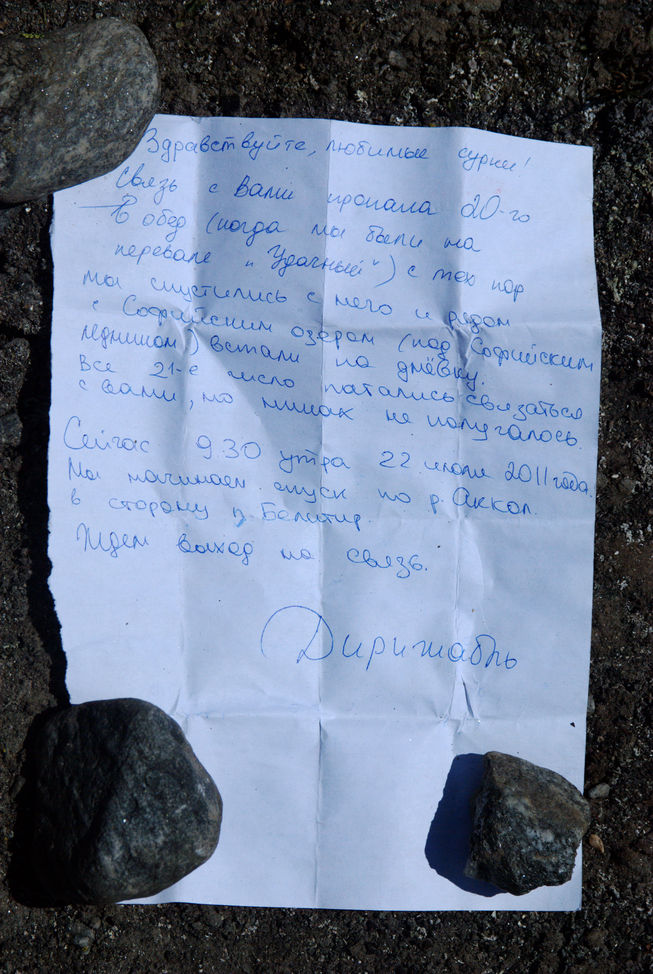 Здравствуйте, любимые сурки!
Связь с Вами пропала 20-го
В обед (когда мы были на
перевале "Удачный") с тех пор
мы спустились с него и рядом
с Софийским озером (под Софийским
ледником) встали на днёвку.
Все 21-е число пытались связаться
с вами, но никак не получалось.
Сейчас 9.30 утра 22 июля 2011 года.
Мы начинаем спуск по р. Аккол.
в сторону п. Бельтир.
Ждем выход на связь.
Дирижабль